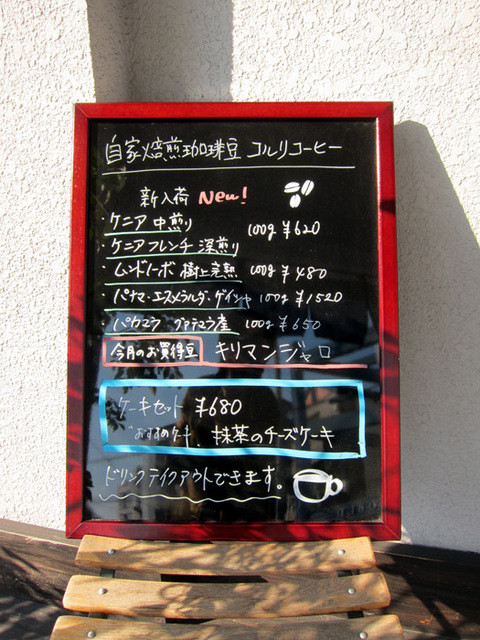 自家焙煎珈琲豆 コルリコーヒー
新入荷 New!
・ケニア 中煎り 100g ¥620
・ケニアフレンチ 深煎り
・ムンドノーボ 樹上完熟 100g ¥480
・パナマ・エスメラルダ・ゲイシャ 100g ¥1520
・パカマラ グァテマラ産 100g ¥650
今月のお買得豆 キリマンジャロ
ケーキセット ¥680
"おすすめケーキ、抹茶のチーズケーキ
ドリンクテイクアウトできます。